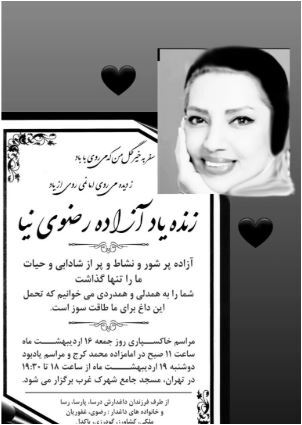 سفر به خیر گل من که می روی با باد
ز دیده می روی اما نمی روی از یاد
زنده یاد آزاده رضوی نیا
آزاده پر شور و نشاط و پر از شادابی و حیات
ما را تنها گذاشت
شما را به همدلی و همدردی می خوانیم که تحمل
این داغ برای ما طاقت سوز است.
مراسم خاکسپاری روز جمعه ۱۶ اردیبهشت ماه
ساعت ۱۱ صبح در امامزاده محمد کرج و مراسم یادبود
دوشنبه ۱۹ اردیبهشت ماه از ساعت ۱۸ تا ۱۹:۳۰
در تهران، مسجد جامع شهرک غرب برگزار می شود.
از طرف فرزندان داغدارش درسا، پارسا، رسا
و خانواده های داغدار : رضوی، غفوریان
ملکی، کشاورز، گودرزی،